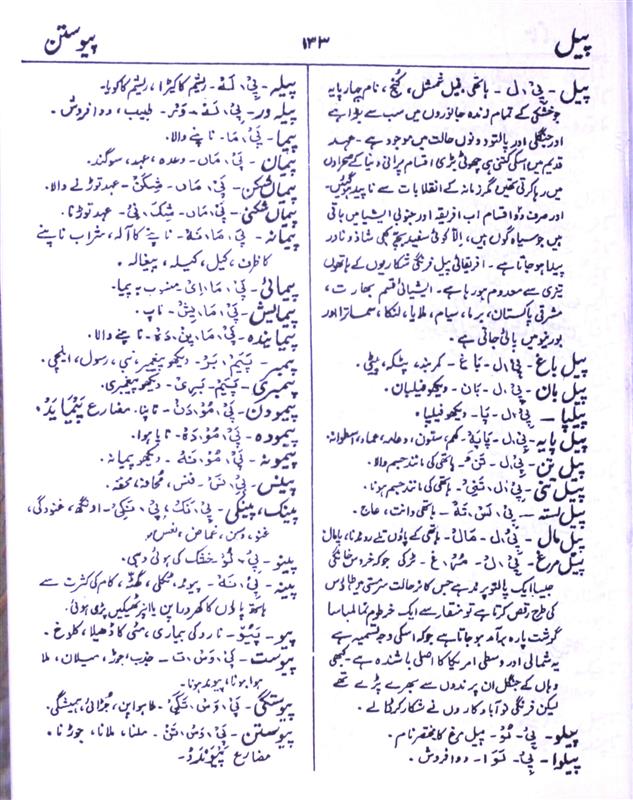 پیل
۱۳۳
پیوستن
پیل - پی، ل - ہاتھی، فیل، نام چہار پایہ
جو خشکی کے تمام زندہ جانوروں میں سب سے بڑا ہے
اور جنگلی اور پالتو دونوں حالت میں موجود ہے - عہد
قدیم میں اسکی کتنی ہی چھوٹی بڑی اقسام پرانی دنیا کے صحراوں
میں رہا کرتی تھیں مگر زمانہ کے انقلابات سے ناپید ہوگئیں
اور صرف دو اقسام اب افریقہ اور جنوبی ایشیا میں باقی
ہیں جو سیاہ گوں ہیں، الّا کوئی سفید بچہ بھی شاذ و نادر
پیدا ہو جاتا ہے - افریقائی پیل فرنگی شکاریوں کے ہاتھوں
تیزی سے معدوم ہو رہا ہے - ایشیائی قسم بھارت،
مشرقی پاکستان، برما، سیام، ملایا، لنکا، سماترا اور
بورنیو میں پائی جاتی ہے -
پیل باغ - پی، ل - باغ - کمربند، پٹکہ، پیٹی -
پیل بان - پی، ل - بان - دیکھو فیلبان -
پیلپا - پی، ل - پا - دیکھو فیلپا -
پیل پایہ - پی، ل - پایہ - کھم، ستون، عماد، اسطوانہ
پیل تن - پی، ل - تن - ہاتھی کی مانند جسیم والا -
پیل تنی - پی، ل، تنی - ہاتھی کی مانند جسیم ہونا -
پیل لستہ - پی، ل - لس، تہ - ہاتھی دانت، عاج -
پیل مال - پی، ل - مال - ہاتھی کے پاؤں تلے روندنا، پامال
پیل مرغ - پی، ل - مرغ - ٹرکی جو کہ خروس خانگی
جیسا ایک پالتو پرند ہے جس کا نر حالت مستی میں طاؤس
کی طرح رقص کرتا ہے تو منقار سے ایک خرطوم نما لمبا سا
گوشت پارہ برآمد ہو جاتا ہے جو کہ اسکی وجہ تسمیہ ہے
یہ شمالی اور وسطی امریکا کا اصلی باشندہ ہے - کبھی
وہاں کے جنگل ان پرندوں سے بھرے پڑے تھے
لیکن فرنگی نوآباد کاروں نے شکار کر ڈالے -
پیلو - پی - لو - پیل مرغ کا مختصر نام -
پیلوا - پی - لوا - دوا فروش -
پیلہ - پی، لہ - ریشم کا کیڑا، ریشم کا کویا -
پیلہ ور - پی، لہ - ور - طبیب، دوا فروش -
پیما - پی، ما - ناپنے والا -
پیمان - پی، ماں - وعدہ، عہد، سوگند -
پیماں شکن - پی، ماں - شکن - عہد توڑنے والا -
پیماں شکنی - پی، ماں - شک، نی - عہد توڑنا -
پیمانہ - پی، ما، نہ - ناپنے کا آلہ، شراب ناپنے
کا ظرف، کیل، کمیلہ، پیغالہ -
پیمائی - پی، ما، ای - منسوب بہ پیما -
پیمایش - پی، ما، یش - ناپ -
پیمایندہ - پی، ما، ین، دہ - ناپنے والا -
پیمبر - پیم، بر - دیکھو پیغمبر، نبی، رسول، ایلچی -
پیمبری - پیم، بری - دیکھو پیغمبری -
پیمودن - پی، مو، دن - ناپنا - مضارع پیماید،
پیمودہ - پی، مو، دہ - ناپا ہوا -
پیمونہ - پی، مو، نہ - دیکھو پیمانہ -
پینس - پی، نس - فنس، محافہ، محفہ -
پینک، پینکی - پی، نک، پی، نکی - اونگھ، غنودگی،
غنو، وسن، غماض، نفس
پینو - پی - نو - خشک کی ہوئی دہی -
پینہ - پی، نہ - پیوند، تھگلی، گھٹہ، کام کی کثرت سے
ہاتھ پاؤں کا کھردرا پن یا ان پر ٹھیکیں پڑی ہوئی -
پیو - پیو - نارو کی بیماری، مٹی کا ڈھیلا، کلوخ -
پیوست - پی، وس، ت - جذب، جوڑ، سیلان، ملا
ہوا ہونا، پیوند ہونا -
پیوستگی - پی، وس، تگی - ملا ہوا پن، جڑائی، ہمیشگی -
پیوستن - پی، وس، تن - ملنا، ملانا، جوڑنا -
مضارع پیوندد -